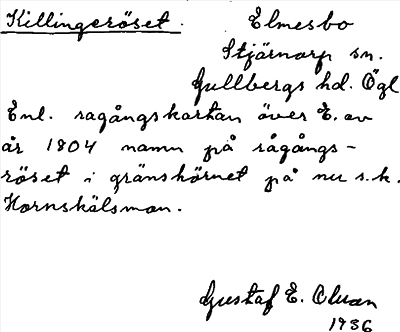 Killingeröset.
Elmesbo
Stjärnorp sn.
Gullbergs hd. Ögl
Enl. rågångskartan över E. av
år 1804 namn på rågångs-
röset i gränshörnet på nu s.k.
Hornskälsmon.
Gustaf E. Olson
1936